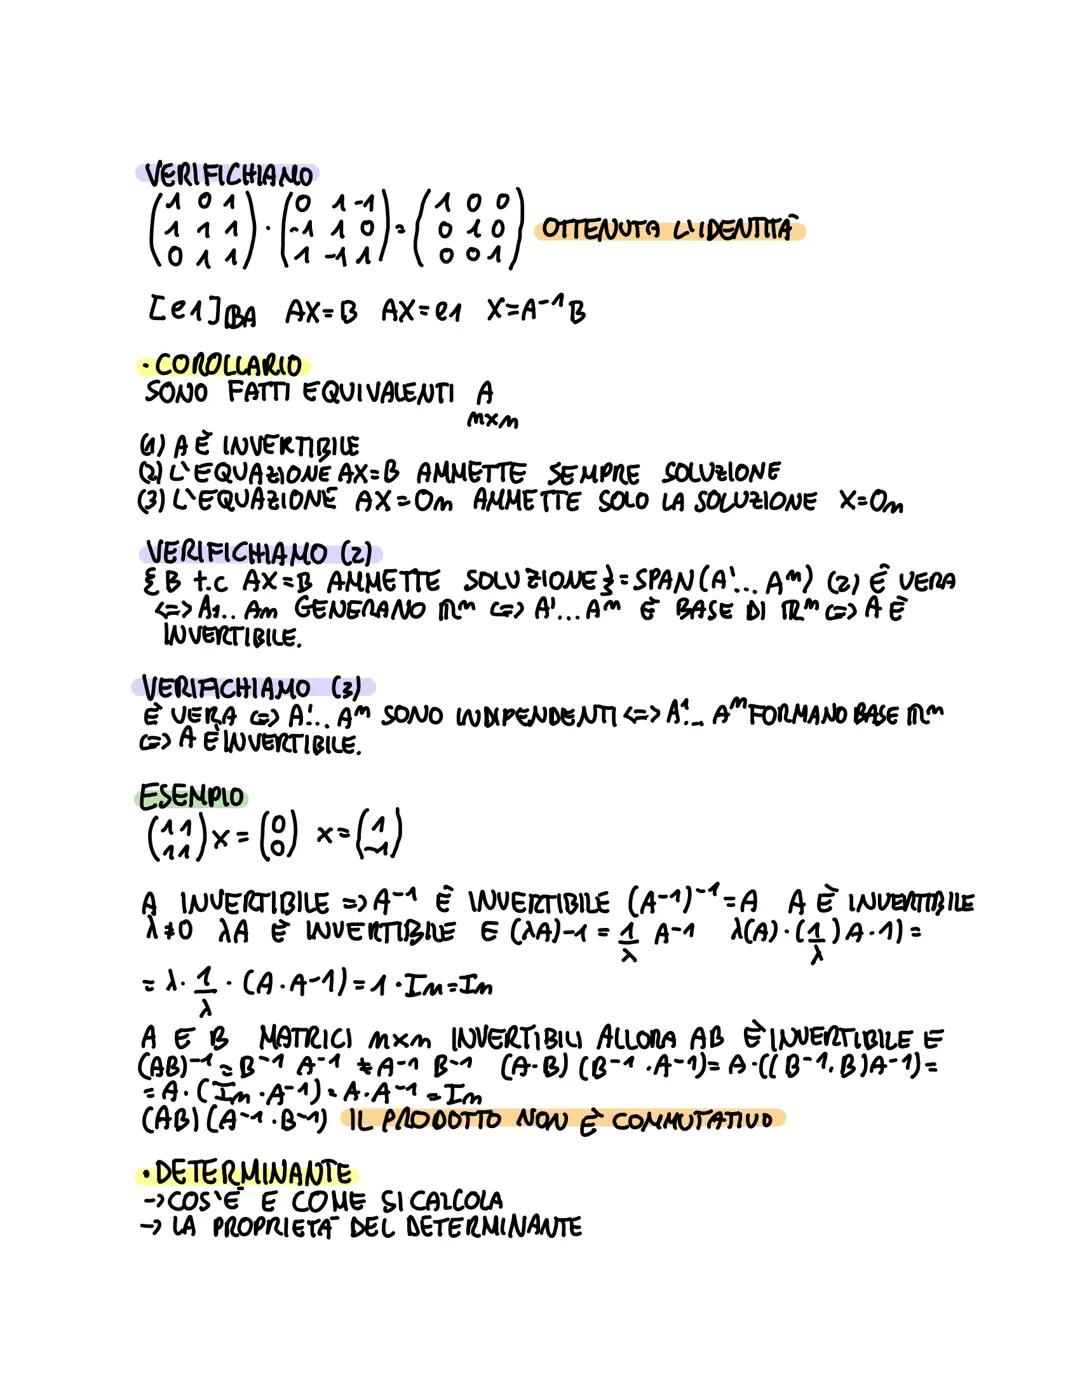 VERIFICHIAMO
(1 0 1 / 1 1 1 / 0 1 1) · (0 1 -1 / -1 1 0 / 1 -1 1) = (1 0 0 / 0 1 0 / 0 0 1) OTTENUTA L'IDENTITÀ
[e1]BA AX=B AX=e1 X=A-1B
· COROLLARIO
SONO FATTI EQUIVALENTI A
mxm
(1) A È INVERTIBILE
(2) L'EQUAZIONE AX=B AMMETTE SEMPRE SOLUZIONE
(3) L'EQUAZIONE AX=Om AMMETTE SOLO LA SOLUZIONE X=Om
VERIFICHIAMO (2)
{B t.c AX=B AMMETTE SOLUZIONE}=SPAN(A¹... Aᵐ) (2) È VERA
<=> A1.. Am GENERANO ℝᵐ <=> A¹... Aᵐ È BASE DI ℝᵐ <=> A È
INVERTIBILE.
VERIFICHIAMO (3)
È VERA <=> A¹.. Aᵐ SONO INDIPENDENTI <=> A¹... Aᵐ FORMANO BASE ℝᵐ
<=> A È INVERTIBILE.
ESEMPIO
(1 1 / 1 1) x = (0 / 0) x=(1 / -1)
A INVERTIBILE => A-1 È INVERTIBILE (A-1)-1=A A È INVERTIBILE
λ≠0 λA È INVERTIBILE E (λA)-1 = 1/λ A-1 λ(A)·(1/λ)A·1)=
= λ· 1/λ · (A·A-1)=1·Im=Im
A E B MATRICI mxm INVERTIBILI ALLORA AB È INVERTIBILE E
(AB)-1=B-1 A-1 ≠A-1 B-1 (A·B)(B-1·A-1)=A·((B-1·B)A-1)=
=A·(Im·A-1)=A·A-1=Im
(AB)(A-1·B-1) IL PRODOTTO NON È COMMUTATIVO
· DETERMINANTE
-> COS'È E COME SI CALCOLA
-> LA PROPRIETÀ DEL DETERMINANTE